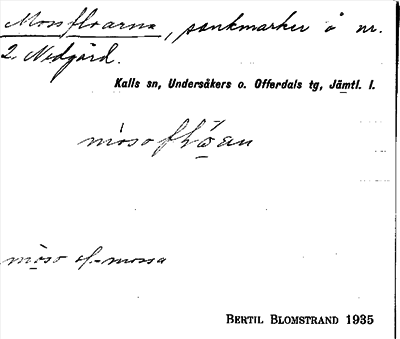 Mossfloarna, sankmarker å nr.
2 Nedgård.
Kalls sn, Undersåkers o. Offerdals tg, Jämtl. l.
möso
möso sf.=mossa
BERTIL BLOMSTRAND 1935